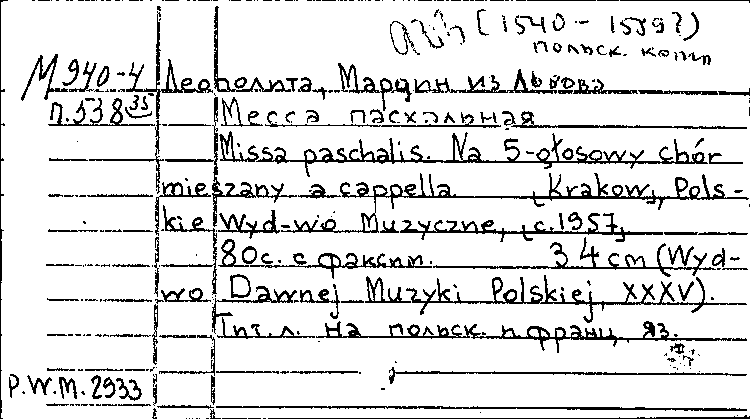 [1540 - 1589?)
польск. комп
М 940-4 Леополита, Марцин из Львова
п.538 35 Месса пасхальная
Missa paschalis. Na 5-głosowy chór
mieszany a cappella. [Krakow], Pols-
kie Wyd-wo Muzyczne, [c.1957]
80с. с факсим. 34 cm (Wyd-
wo Dawnej Muzyki Polskiej, XXXV).
Тит. л. на польск. и франц. яз.
P.W.M. 2933